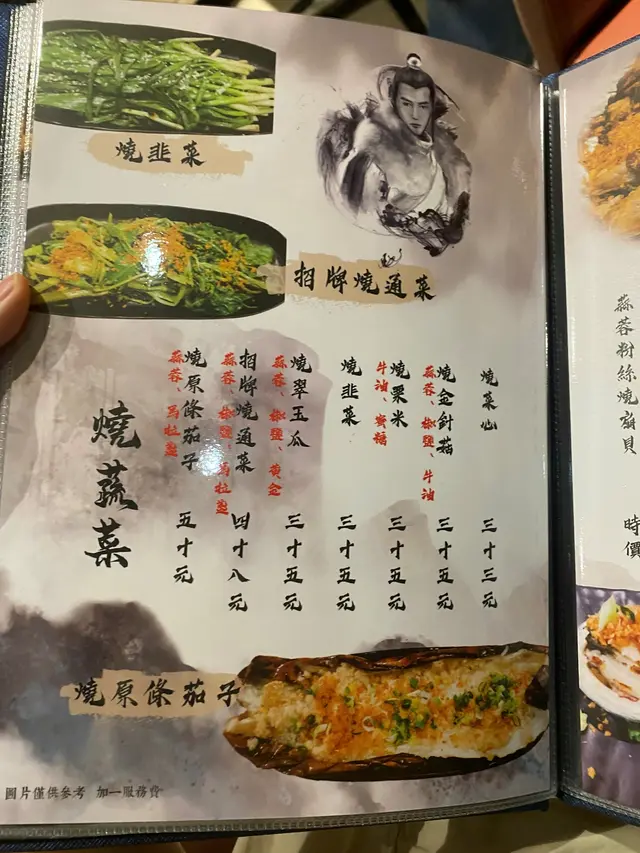 燒韭菜
招牌燒通菜
燒菜心 三十三元
燒金針菇 三十五元
蒜蓉、椒鹽、牛油
燒粟米 三十五元
牛油、蜜糖
燒韭菜 三十五元
燒翠玉瓜 三十五元
蒜蓉、椒鹽、黃金
招牌燒通菜 四十八元
蒜蓉、椒鹽、馬拉盞
燒原條茄子 五十元
蒜蓉、馬拉盞
燒蔬菜
燒原條茄子
圖片僅供參考 加一服務費
蒜蓉粉絲燒扇貝 時價